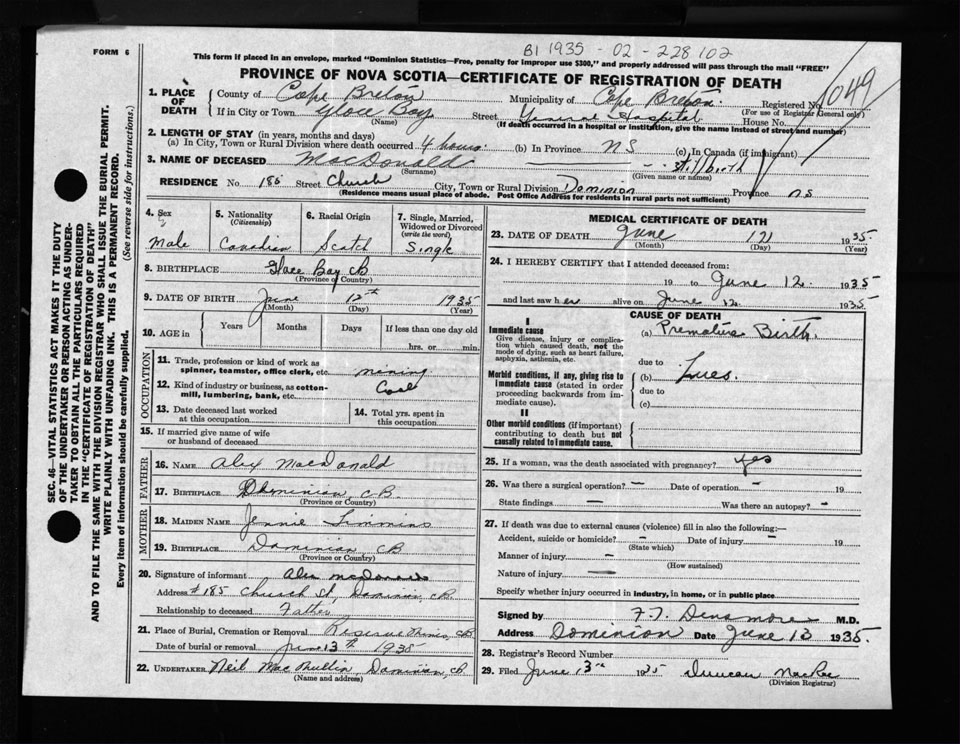 B1 1935 - 02 - 228102
FORM 6
This form if placed in an envelope, marked "Dominion Statistics—Free, penalty for improper use $300," and properly addressed will pass through the mail "FREE"
PROVINCE OF NOVA SCOTIA—CERTIFICATE OF REGISTRATION OF DEATH
1049
1. PLACE OF DEATH
County of Cape Breton
Municipality of Cape Breton
Registered No.
(For use of Registrar General only)
If in City or Town Glace Bay
(Name)
Street General Hospital House No.
(If death occurred in a hospital or institution, give the name instead of street and number)
2. LENGTH OF STAY (in years, months and days)
(a) In City, Town or Rural Division where death occurred 4 hours. (b) In Province NS (c) In Canada (if immigrant)
3. NAME OF DECEASED MacDonald Stillbirth
(Surname) (Given name or names)
RESIDENCE No. 185 Street Church City, Town or Rural Division Dominion Province NS
(Residence means usual place of abode. Post Office Address for residents in rural parts not sufficient)
4. Sex
Male
5. Nationality
(Citizenship)
Canadian
6. Racial Origin
Scotch
7. Single, Married, Widowed or Divorced
(write the word)
Single
8. BIRTHPLACE Glace Bay CB
(Province or Country)
9. DATE OF BIRTH June 12th 1935
(Month) (Day) (Year)
10. AGE in
Years
Months
Days
If less than one day old
hrs. or min.
OCCUPATION
11. Trade, profession or kind of work as spinner, teamster, office clerk, etc. mining
12. Kind of industry or business, as cotton-mill, lumbering, bank, etc. Coal
13. Date deceased last worked at this occupation
14. Total yrs. spent in this occupation
15. If married give name of wife or husband of deceased
FATHER
16. NAME Alex MacDonald
17. BIRTHPLACE Dominion, CB
(Province or Country)
MOTHER
18. MAIDEN NAME Jennie Simmins
19. BIRTHPLACE Dominion CB
(Province or Country)
20. Signature of informant Alex McDonald
Address #185 Church St, Dominion, CB
Relationship to deceased Father
21. Place of Burial, Cremation or Removal Reserve Mines, CB
Date of burial or removal June 13th 1935
22. UNDERTAKER Neil MacMullin, Dominion CB
(Name and address)
MEDICAL CERTIFICATE OF DEATH
23. DATE OF DEATH June 12 1935
(Month) (Day) (Year)
24. I HEREBY CERTIFY that I attended deceased from:
19 to June 12. 1935
and last saw h er alive on June 12. 1935.
CAUSE OF DEATH
I
Immediate cause
Give disease, injury or complication which caused death, not the mode of dying, such as heart failure, asphyxia, asthenia, etc.
(a) Premature Birth.
due to
Morbid conditions, if any, giving rise to immediate cause (stated in order proceeding backwards from immediate cause).
(b) Lues.
due to
(c)
II
Other morbid conditions (if important) contributing to death but not causally related to immediate cause.
25. If a woman, was the death associated with pregnancy? yes
26. Was there a surgical operation? — Date of operation — 19
State findings — Was there an autopsy? -
27. If death was due to external causes (violence) fill in also the following:—
Accident, suicide or homicide? - Date of injury - 19
(State which)
Manner of injury -
(How sustained)
Nature of injury —
Specify whether injury occurred in industry, in home, or in public place
Signed by F.T. Densmore M.D.
Address Dominion Date June 13 1935.
28. Registrar's Record Number
29. Filed June 13th 1935 Duncan MacRae
(Division Registrar)
SEC. 46—VITAL STATISTICS ACT MAKES IT THE DUTY
OF THE UNDERTAKER OR PERSON ACTING AS UNDER-
TAKER TO OBTAIN ALL THE PARTICULARS REQUIRED
IN THE "CERTIFICATE OF REGISTRATION OF DEATH"
AND TO FILE THE SAME WITH THE DIVISION REGISTRAR WHO SHALL ISSUE THE BURIAL PERMIT.
WRITE PLAINLY WITH UNFADING INK. THIS IS A PERMANENT RECORD.
Every item of information should be carefully supplied. (See reverse side for instructions.)